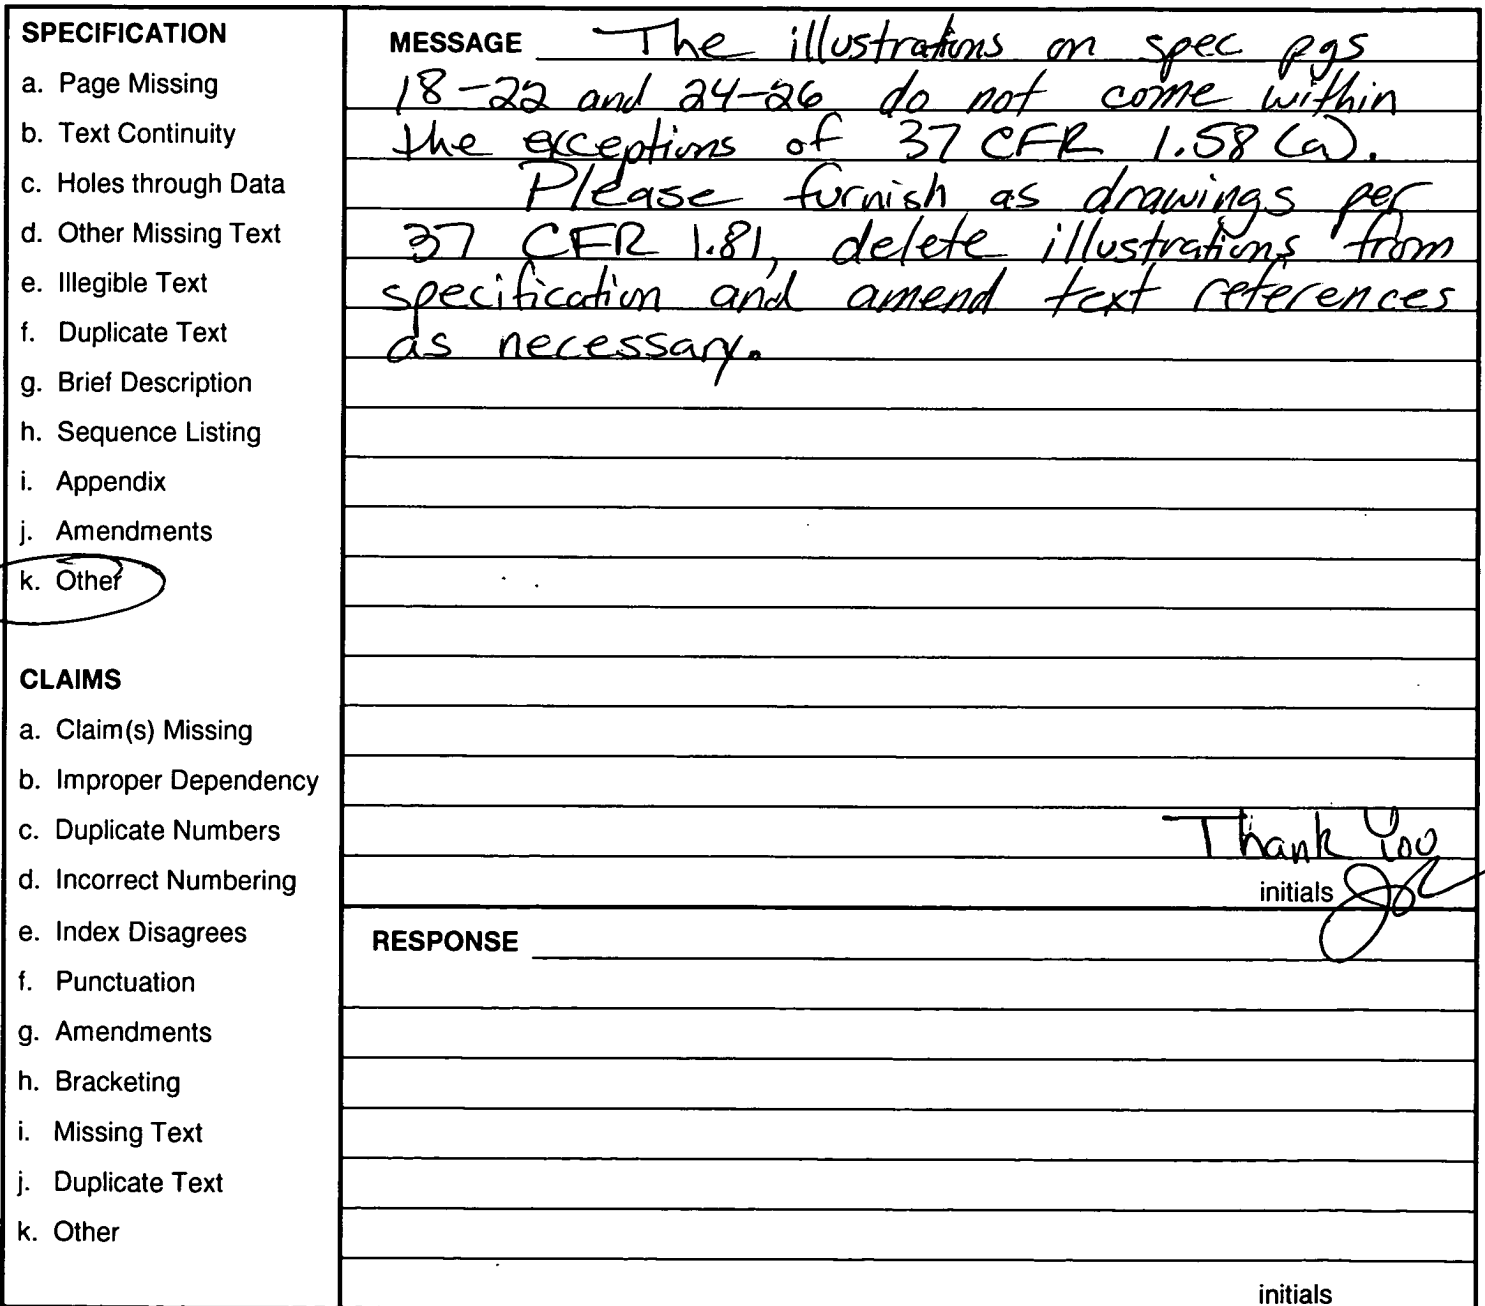 SPECIFICATION
a. Page Missing
b. Text Continuity
c. Holes through Data
d. Other Missing Text
e. Illegible Text
f. Duplicate Text
g. Brief Description
h. Sequence Listing
i. Appendix
j. Amendments
k. Other
CLAIMS
a. Claim(s) Missing
b. Improper Dependency
c. Duplicate Numbers
d. Incorrect Numbering
e. Index Disagrees
f. Punctuation
g. Amendments
h. Bracketing
i. Missing Text
j. Duplicate Text
k. Other
MESSAGE The illustrations on spec pgs
18-22 and 24-26 do not come within
the exceptions of 37 CFR 1.58 (a).
Please furnish as drawings per
37 CFR 1.81, delete illustrations from
specification and amend text references
as necessary.
Thank You
initials
RESPONSE
initials